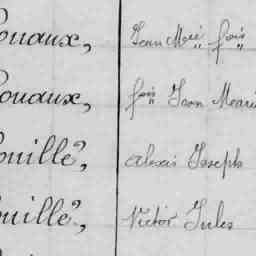 onaux, Jean Mie fois
onaux, fois Jean Marie
ouillé, Alexis Joseph
ouillé, Victor Jules